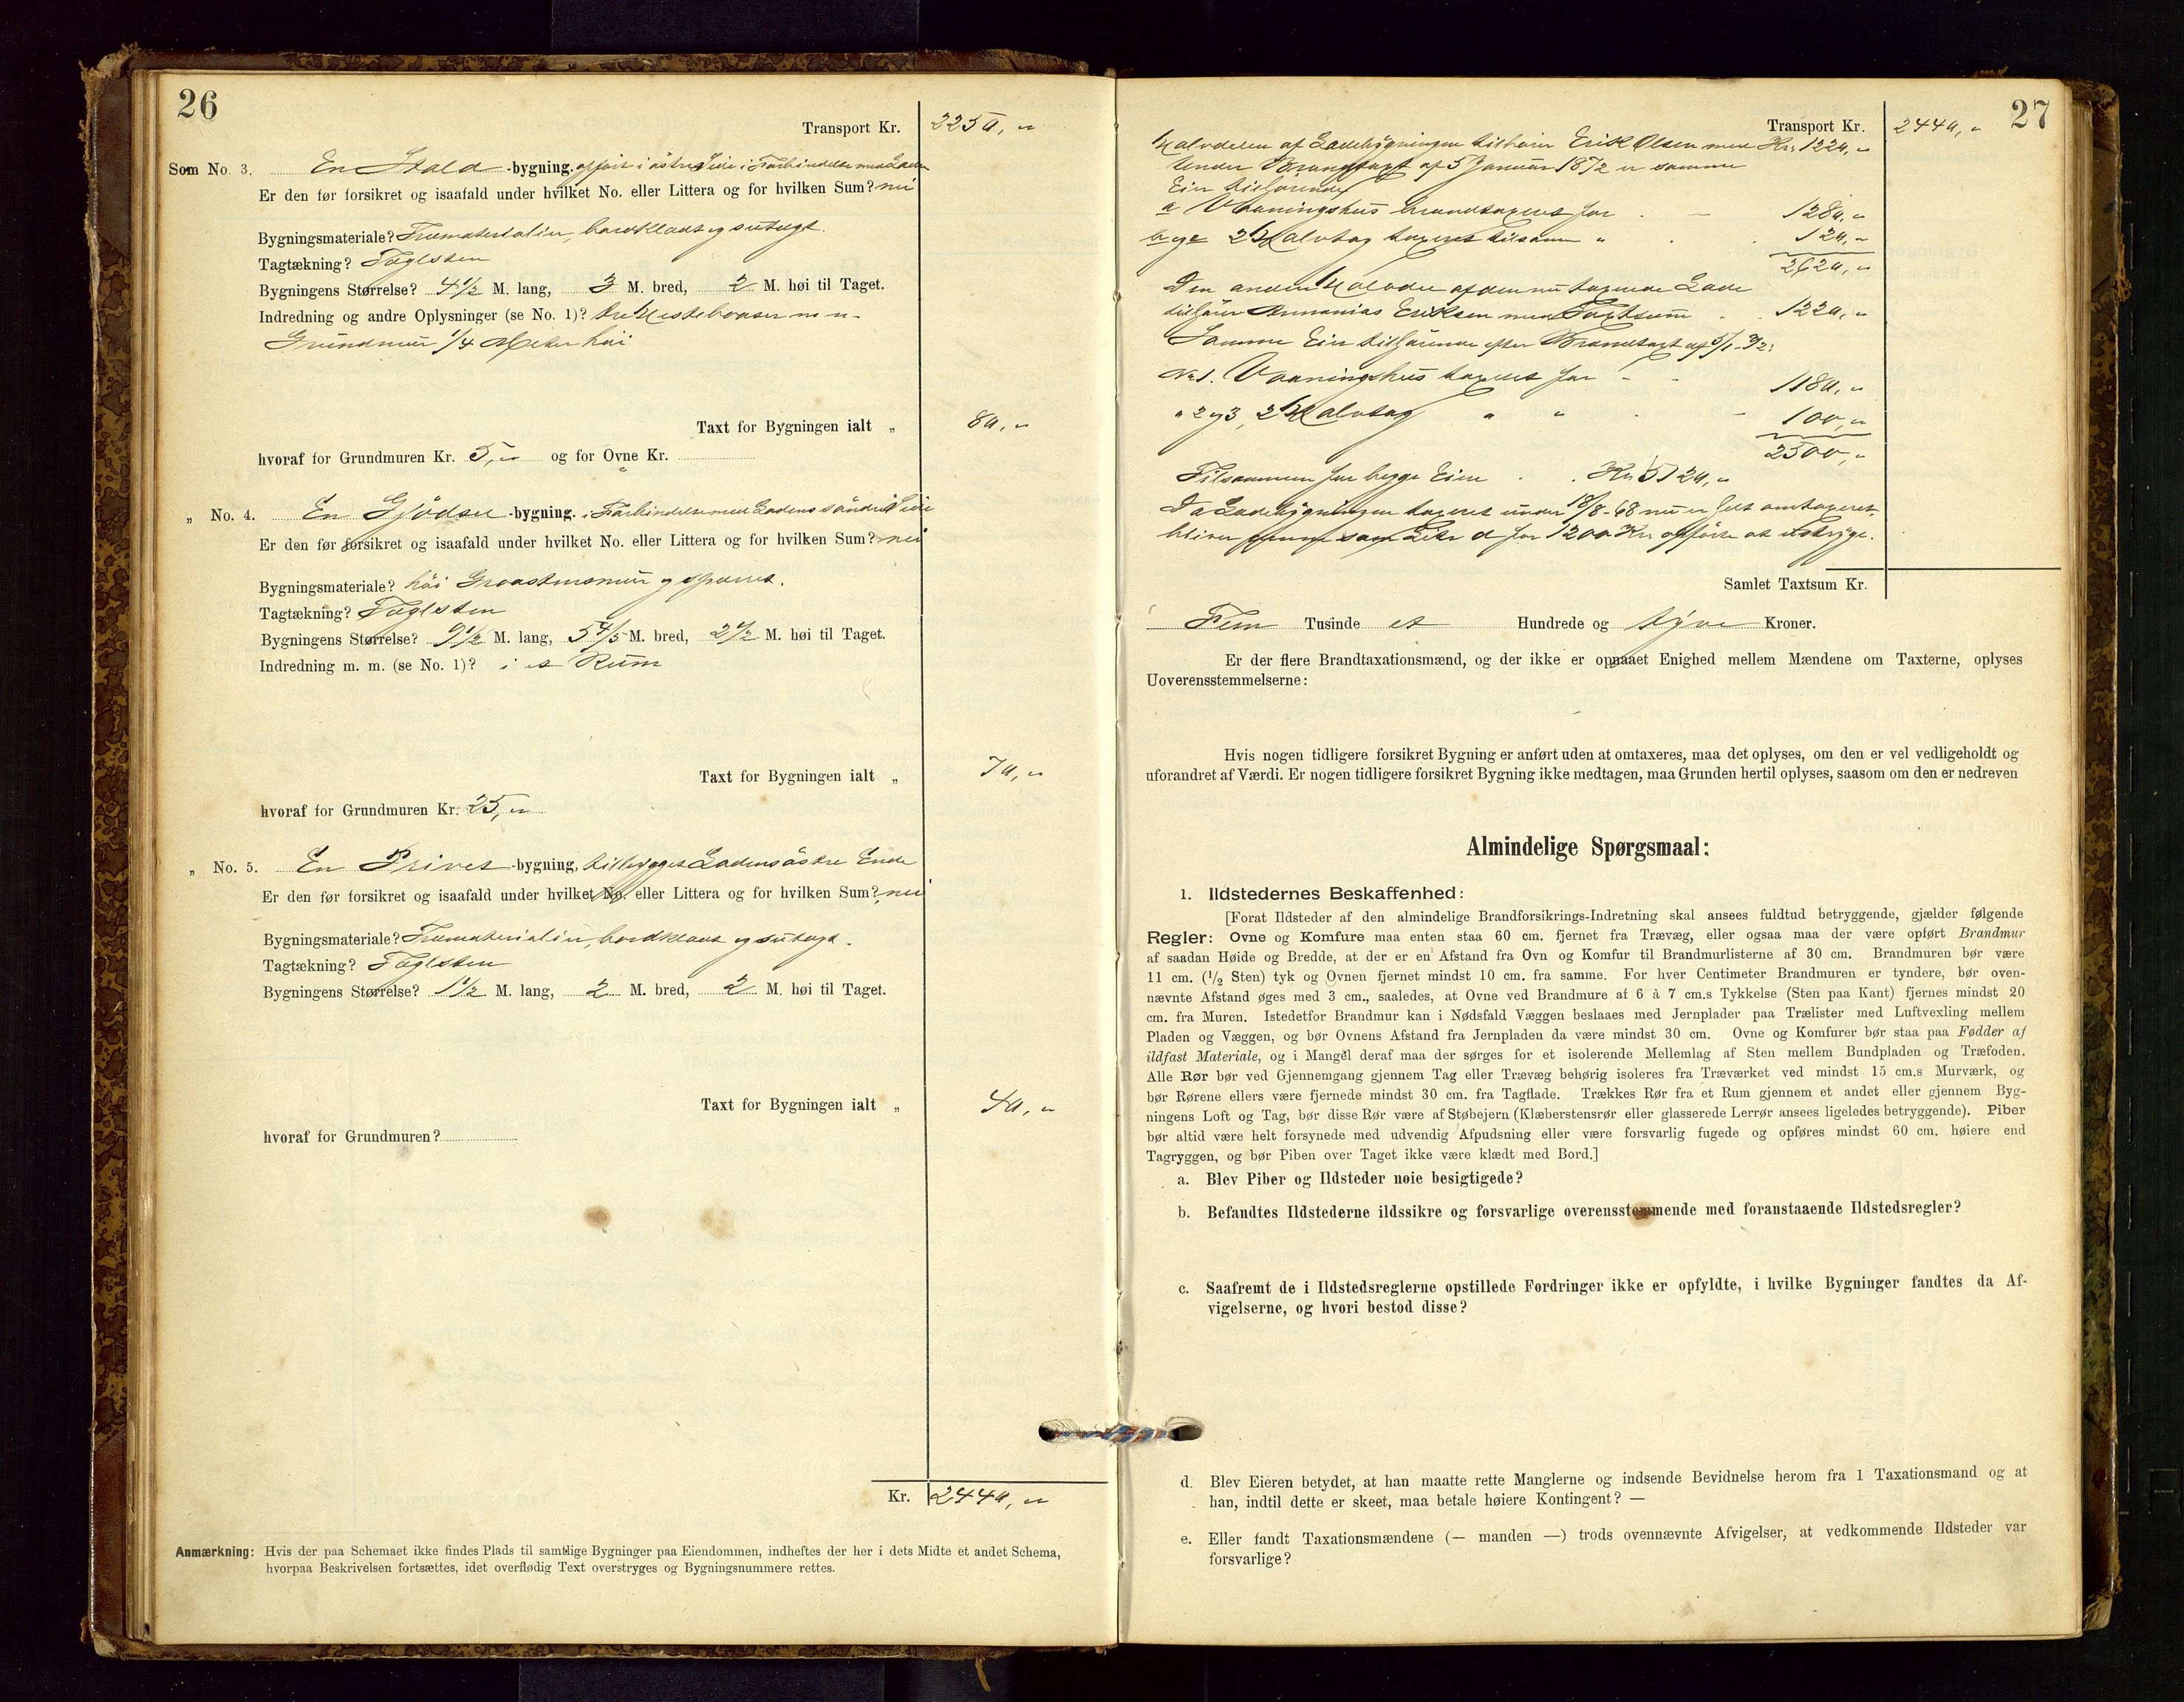 26
Transport Kr. 2250, "
Som No. 3. En Stald -bygning. opført i østre Side i Forbindelse med Laden
Er den før forsikret og isaafald under hvilket No. eller Littera og for hvilken Sum? nei
Bygningsmateriale? Træmaterialier, bordklædt og sutagt.
Tagtækning? Taglsten
Bygningens Størrelse? 4 1/2 M. lang, 3 M. bred, 2 M. høi til Taget.
Indredning og andre Oplysninger (se No. 1)? tre Hestebaaser m n-
Grundmur 1/4 Meter høi
Taxt for Bygningen ialt „ 80, "
hvoraf for Grundmuren Kr. 5, " og for Ovne Kr.
„ No. 4. En Gjødsel -bygning. i Forbindelse med Ladens søndre Side
Er den før forsikret og isaafald under hvilket No. eller Littera og for hvilken Sum? nei
Bygningsmateriale? høi Graastensmur og sparret.
Tagtækning? Taglsten
Bygningens Størrelse? 9 1/2 M. lang, 5 4/5 M. bred, 2 1/2 M. høi til Taget.
Indredning m. m. (se No. 1)? i et Rum
Taxt for Bygningen ialt „ 70, "
hvoraf for Grundmuren Kr. 25, "
„ No. 5. En Privet -bygning, tilbygget Ladens østre Ende
Er den før forsikret og isaafald under hvilket No. eller Littera og for hvilken Sum? nei
Bygningsmateriale? Træmaterialier, bordklædt og sutagt.
Tagtækning? Taglsten
Bygningens Størrelse? 1 1/2 M. lang, 2 M. bred, 2 M. høi til Taget.
Taxt for Bygningen ialt „ 40, "
hvoraf for Grundmuren?
Kr. 2440, "
Anmærkning: Hvis der paa Schemaet ikke findes Plads til samtlige Bygninger paa Eiendommen, indheftes der her i dets Midte et andet Schema,
hvorpaa Beskrivelsen fortsættes, idet overflødig Text overstryges og Bygningsnummere rettes.
27
Transport Kr. 2440, "
Halvdelen af Ladebygningen tilhører Erik Olsen med Kr. 1220, "
Under Brandtaxt af 5 Januar 1872 er samme
Eier tilhørende
a Vaaningshus brandtaxeret for 1280, "
b og c 2 Halvtag taxeret tilsamm " 120, "
2620, "
Den anden Halvdel af den nu taxerede Lade
tilhører Ananias Eriksen med Taxtsum 1220, "
Samme Eier tilhørende efter Brandtaxt af 5/1-72:
No 1. Vaaningshus taxeret for 1180, "
" 2 og 3, 2 Halvtag " " 100, "
2500, "
Tilsammen for begge Eiere Kr. 5120, "
Da Ladebygningen taxeret under 18/8-68 nu er helt omtaxeret,
bliver som Litr d for 1200 Kr. opførte at udstryge.
Samlet Taxtsum Kr.
Fem Tusinde et Hundrede og tyve Kroner.
Er der flere Brandtaxationsmænd, og der ikke er opnaaet Enighed mellem Mændene om Taxterne, oplyses
Uoverensstemmelserne:
Hvis nogen tidligere forsikret Bygning er anført uden at omtaxeres, maa det oplyses, om den er vel vedligeholdt og
uforandret af Værdi. Er nogen tidligere forsikret Bygning ikke medtagen, maa Grunden hertil oplyses, saasom om den er nedreven
Almindelige Spørgsmaal:
1. Ildstedernes Beskaffenhed:
[Forat Ildsteder af den almindelige Brandforsikrings-Indretning skal ansees fuldtud betryggende, gjælder følgende
Regler: Ovne og Komfure maa enten staa 60 cm. fjernet fra Trævæg, eller ogsaa maa der være opført Brandmur
af saadan Høide og Bredde, at der er en Afstand fra Ovn og Komfur til Brandmurlisterne af 30 cm. Brandmuren bør være
11 cm. (1/2 Sten) tyk og Ovnen fjernet mindst 10 cm. fra samme. For hver Centimeter Brandmuren er tyndere, bør oven-
nævnte Afstand øges med 3 cm., saaledes, at Ovne ved Brandmure af 6 à 7 cm.s Tykkelse (Sten paa Kant) fjernes mindst 20
cm. fra Muren. Istedetfor Brandmur kan i Nødsfald Væggen beslaaes med Jernplader paa Trælister med Luftvexling mellem
Pladen og Væggen, og bør Ovnens Afstand fra Jernpladen da være mindst 30 cm. Ovne og Komfurer bør staa paa Fødder af
ildfast Materiale, og i Mangel deraf maa der sørges for et isolerende Mellemlag af Sten mellem Bundpladen og Træfoden.
Alle Rør bør ved Gjennemgang gjennem Tag eller Trævæg behørig isoleres fra Træværket ved mindst 15 cm.s Murværk, og
bør Rørene ellers være fjernede mindst 30 cm. fra Tagflade. Trækkes Rør fra et Rum gjennem et andet eller gjennem Byg-
ningens Loft og Tag, bør disse Rør være af Støbejern (Klæberstensrør eller glasserede Lerrør ansees ligeledes betryggende). Piber
bør altid være helt forsynede med udvendig Afpudsning eller være forsvarlig fugede og opføres mindst 60 cm. høiere end
Tagryggen, og bør Piben over Taget ikke være klædt med Bord.]
a. Blev Piber og Ildsteder nøie besigtigede?
b. Befandtes Ildstederne ildssikre og forsvarlige overensstemmende med foranstaaende Ildstedsregler?
c. Saafremt de i Ildstedsreglerne opstillede Fordringer ikke er opfyldte, i hvilke Bygninger fandtes da Af-
vigelserne, og hvori bestod disse?
d. Blev Eieren betydet, at han maatte rette Manglerne og indsende Bevidnelse herom fra 1 Taxationsmand og at
han, indtil dette er skeet, maa betale høiere Kontingent? —
e. Eller fandt Taxationsmændene (— manden —) trods ovennævnte Afvigelser, at vedkommende Ildsteder var
forsvarlige?